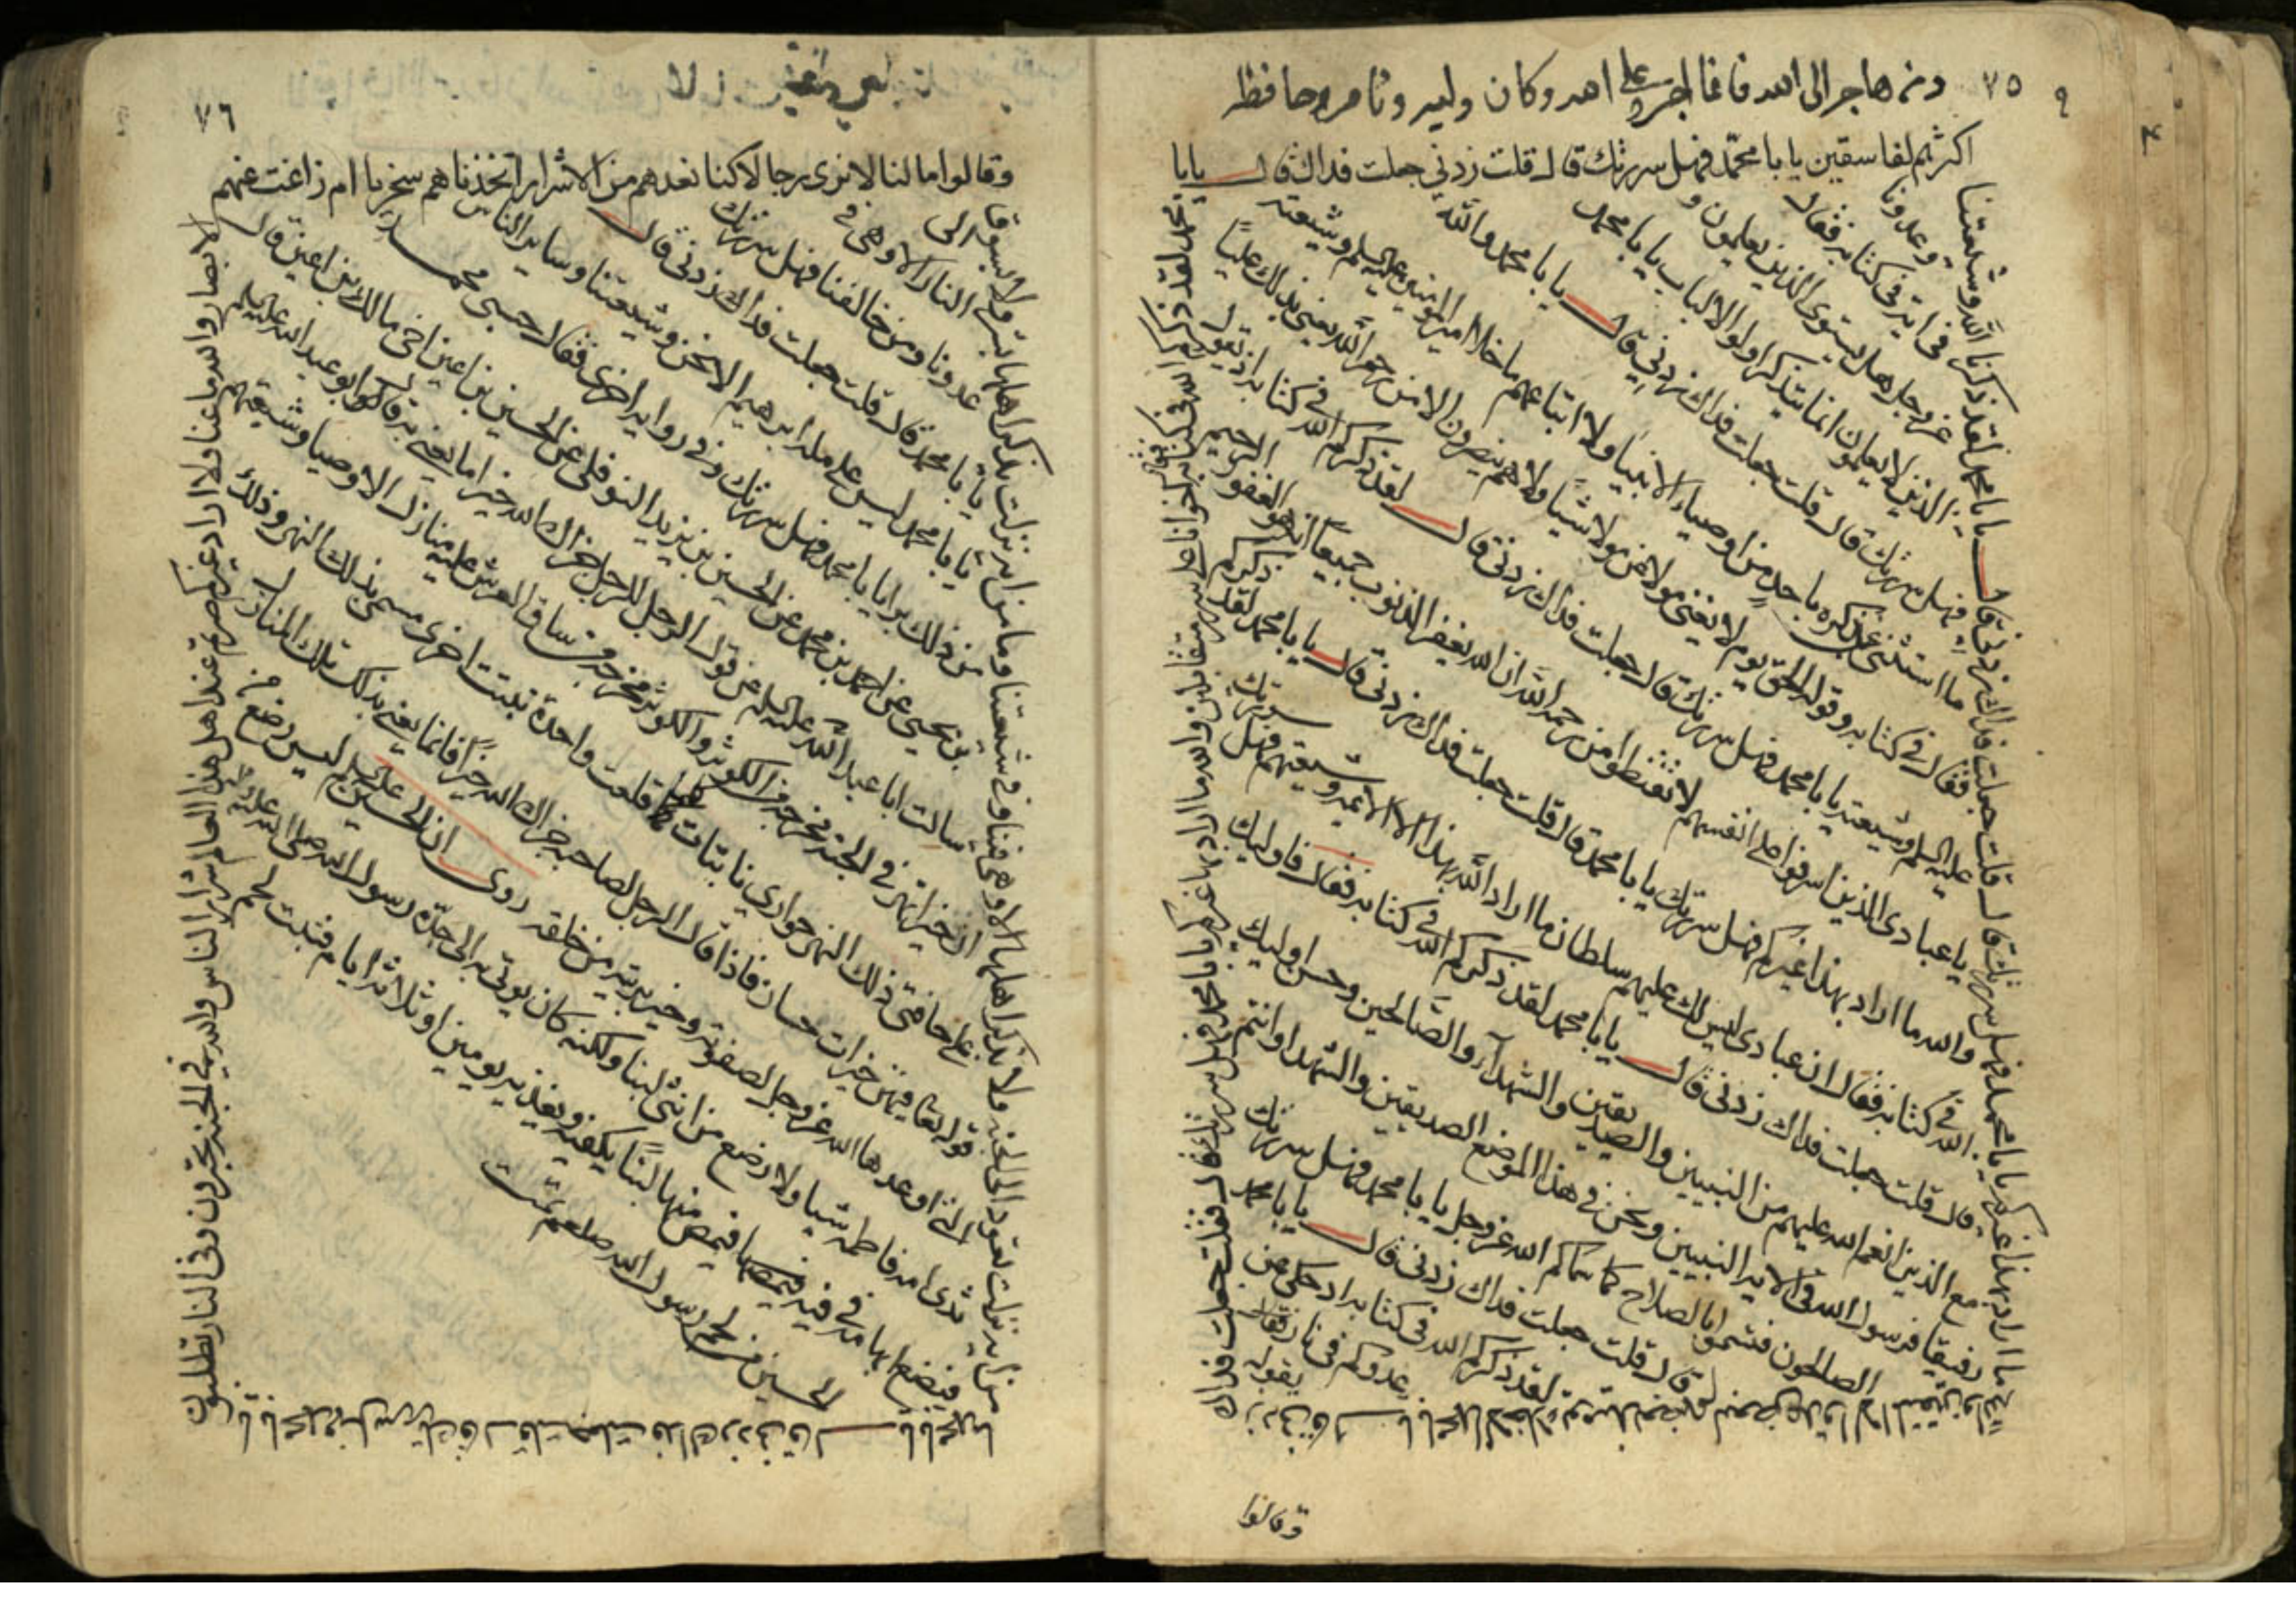 ٧٥
اكثرهم لفاسقين يا با محمد فهل سررتك قال قلت زدني جعلت فداك قال يا با
محمد لقد ذكركم الله في كتابه
يا با محمد لقد ذكرنا الله وشيعتنا وعدونا في اية من كتابه فقال
عز وجل هل يستوي الذين يعلمون و
الذين لا يعلمون انما يتذكر اولوا الالباب يا با محمد
فهل سررتك قال قلت جعلت فداك زدني قال يا با محمد والله
ما استثنى عز ذكره باحد من اوصياء الانبيا ولا اتباعهم ما خلا امير المؤمنين عليه السلم وشيعته
فقال في كتابه وقوله الحق يوم لا يغني مولى عن مولى شيئا ولا هم ينصرون الا من رحم الله يعني بذلك عليا
عليه السلم وشيعته يا با محمد فهل سررتك قال جعلت فداك زدني قال لقد ذكركم الله في كتابه اذ يقول
يا عبادي الذين اسرفوا على انفسهم لا تقنطوا من رحمة الله ان الله يغفر الذنوب جميعا انه هو الغفور الرحيم
والله ما اراد بهذا غيركم فهل سررتك يا با محمد قال قلت جعلت فداك زدني قال يا با محمد لقد ذكركم
الله في كتابه فقال ان عبادي ليس لك عليهم سلطان ما اراد الله بهذا الا الائمة وشيعتهم فهل سررتك
قال قلت جعلت فداك زدني قال يا با محمد لقد ذكركم الله في كتابه فقال فاوليك
مع الذين انعم الله عليهم من النبيين والصديقين والشهدآء والصالحين وحسن اوليك
رفيقا فرسول الله في الاية النبيين ونحن في هذا الموضع الصديقين والشهدا وانتم
الصالحون فتسموا بالصلاح كما سماكم الله عز وجل يا با محمد فهل سررتك
قال قلت جعلت فداك زدني قال يا با محمد
لقد ذكركم الله في كتابه اذ حكى عن
عدوكم في النار بقوله
وقالوا
٧٦
وقالوا ما لنا لا نرى رجالا كنا نعدهم من الاشرار اتخذناهم سخريا ام زاغت عنهم
الابصار والله ما عنا ولا اراد غيركم صرتم عند اهل هذا العالم شرار الناس والله في الجنة تحبرون وفي النار تطلبون
يا با محمد فهل سررتك قال قلت جعلت فداك زدني قال يا با محمد
ما من اية نزلت تقود الى الجنة ولا تذكر اهلها الا وهي فينا وفي شيعتنا وما من اية نزلت تذكر اهلها بشر ولا تسوق الى
النار الا وهي في
عدونا ومن خالفنا فهل سررتك
يا با محمد قال قلت جعلت فداك زدني قال
يا با محمد ليس على ملة ابرهيم الا نحن وشيعتنا وساير الناس
من ذلك برا يا با محمد فهل سررتك وفي رواية اخرى فقال حسبي
بن يحيى عن احمد بن محمد عن الحسين بن يزيد النوفلي عن الحسين بن اعين اخي مالك بن اعين قال
سالت ابا عبد الله عليه السلم عن قول الرجل للرجل جزاك الله خيرا ما يعني به قال ابو عبد الله عليه السلم
ان خيرا نهر في الجنة مخرجه من الكوثر والكوثر مخرجه من ساق العرش عليه منازل الاوصيا وشيعتهم
على حافتي ذلك النهر جواري نابتات كلما قلعت واحدة نبتت اخرى سمي بذلك النهر وذلك
قوله تعا فيهن خيرات حسان فاذا قال الرجل لصاحبه جزاك الله خيرا فانما يعني بذلك تلك المنازل
التي اعدها الله عز وجل لصفوته وخيرته من خلقه روى ان الحسين عليه السلم ليس رضع من
ثدي امه فاطمة شيا ولا رضع من انثى لبنا ولكنه كان يوتى به الى جده رسول الله صلى الله عليه واله
فيضع ابهامه في فيه فيمصها فيمص منها لبنا يكفيه ويغذيه يومين او ثلاثة ايام فنبت لحم
الحسين من لحم رسول الله صلعم تمت